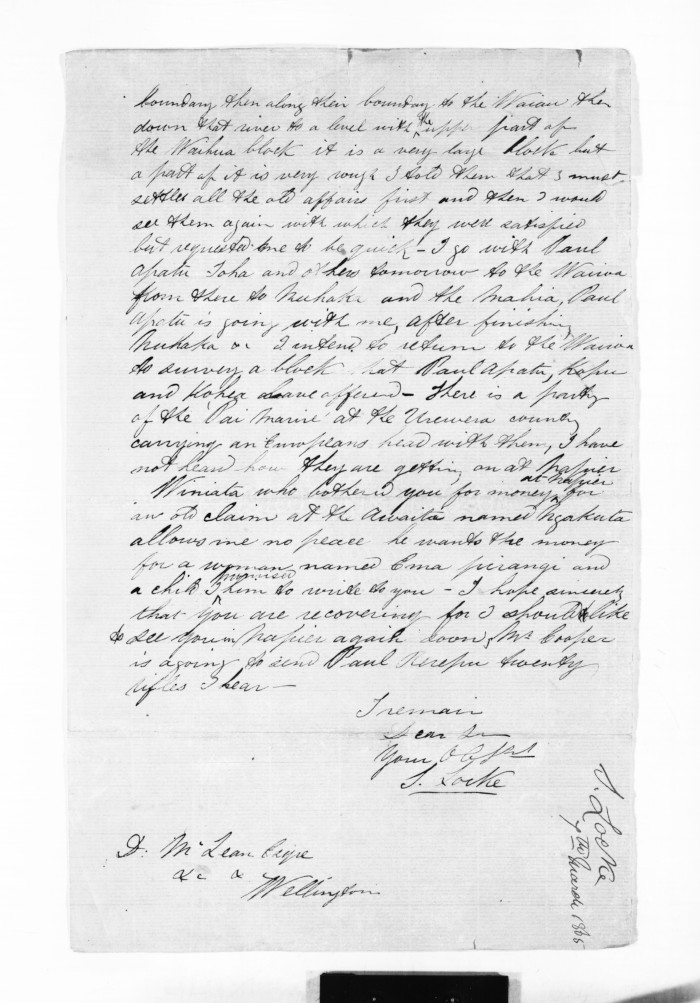 boundary then along their boundary to the Waiau then
down that river to a level with the upper part of
the Waihua block it is a very large block but
a part of it is very rough I told them that I must
settle all the old affairs first and then I would
see them again with which they were satisfied
but requested me to be quick - I go with Paul
Apatu Toha and others tomorrow to the Wairoa
from there to Nuhaka and the Mahia, Paul
Apatu is going with me, after finishing
Nuhaka I intend to return to the Wairoa
to survey a block that Paul Apatu, Kopu
and have offered - There is a party
of the Pai Marire at the Urewera country
carrying an Europeans head with them, I have
not heard how they are getting on at Napier
Winiata who bothered you for money at Napier for
an old claim at the Awaita named Ngakuta
allows me no peace he wants the money
for a woman named Ema and
a child I promised him to write to you - I hope sincerely
that you are recovering for I should like
to see you in Napier again soon, Mr Cooper
is a going to send Paul Rerepu twenty
rifles I hear -
I remain
Dear Sir
Your
S. Locke
D. McLean Esqre
&c &
Wellington
S. Locke
7th March 1865